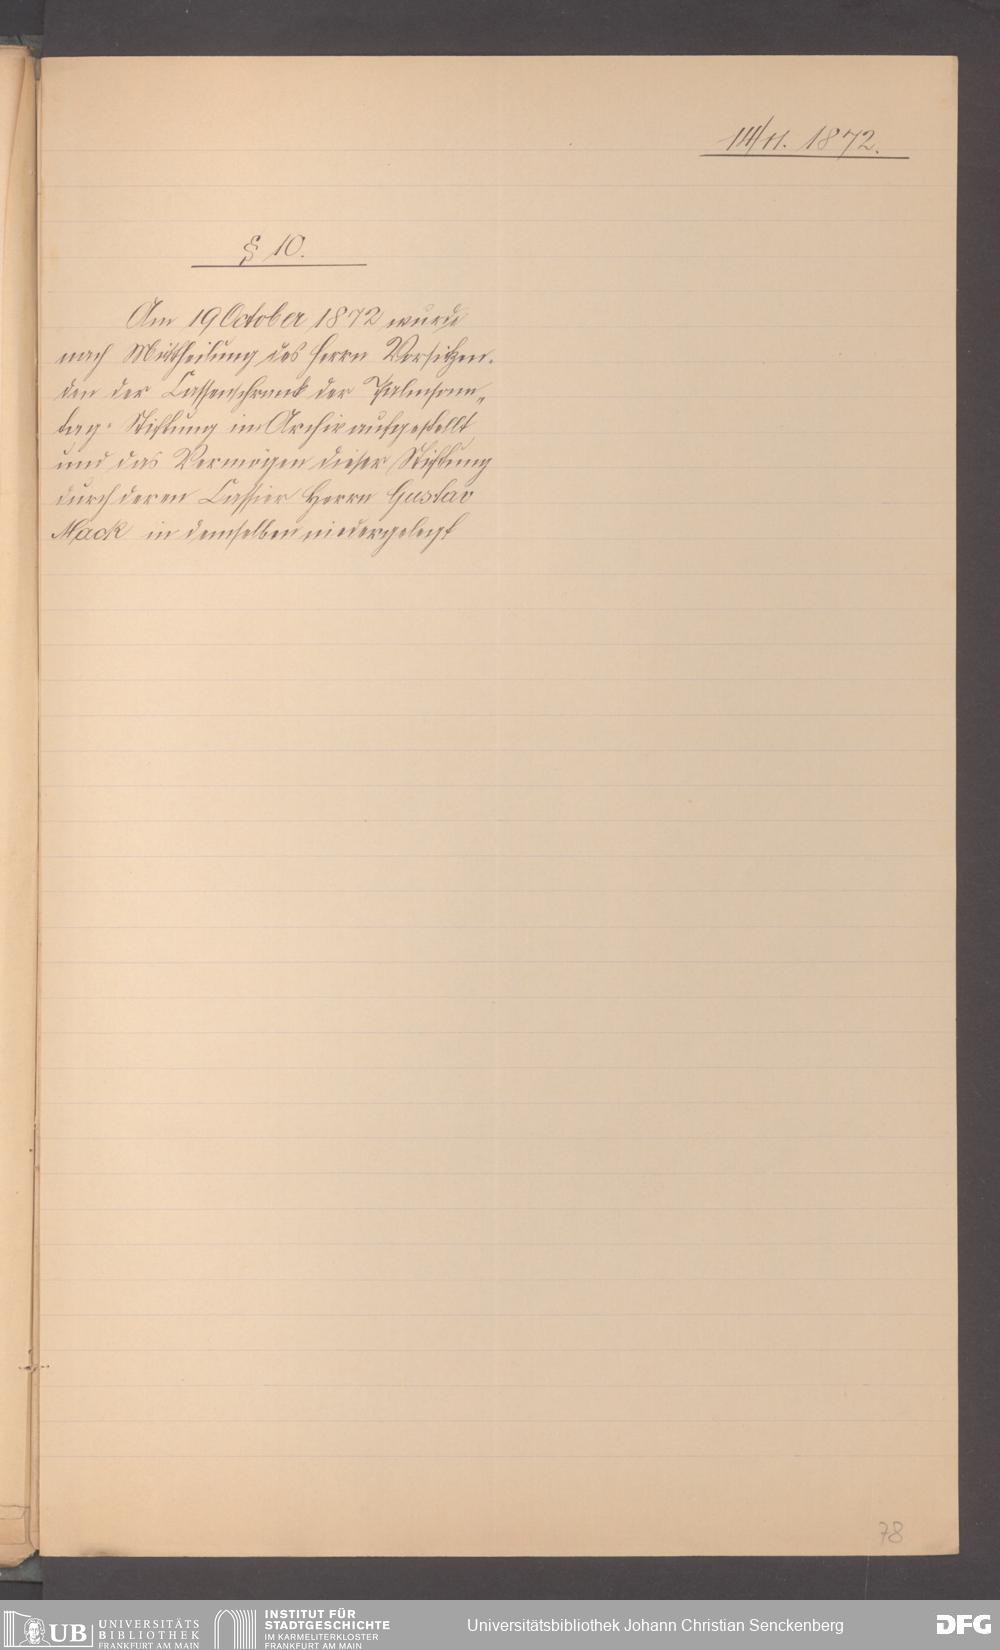 14/11. 1872.
§ 10.
Am 19 October 1872 wurde
nach Mittheilung des Herrn Vorsitzen-
den der Cassenschrank der Palmsonn-
tag-Stiftung im Archiv aufgestellt
und das Vermögen dieser Stiftung
durch deren Cassier Herrn Gustav
Mack in demselben niedergelegt
78
UB UNIVERSITÄTS
BIBLIOTHEK
FRANKFURT AM MAIN
INSTITUT FÜR
STADTGESCHICHTE
IM KARMELITERKLOSTER
FRANKFURT AM MAIN
Universitätsbibliothek Johann Christian Senckenberg
DFG